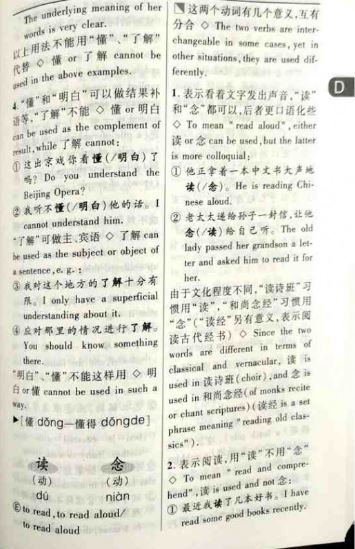 The underlying meaning of her
words is very clear.
以上用法不能用“懂”、“了解”
代替 ◇ 懂 or 了解 cannot be
used in the above examples.
4. “懂”和“明白”可以做结果补
语等，“了解”不能 ◇ 懂 or 明白
can be used as the complement of
result, while 了解 cannot:
① 这出京戏你看懂(/明白)了
吗? Do you understand the
Beijing Opera?
② 我听不懂(/明白)他的话。I
cannot understand him.
“了解”可做主、宾语 ◇ 了解 can
be used as the subject or object of
a sentence, e. g. :
③ 我对这个地方的了解十分有
限。I only have a superficial
understanding about it.
④ 应对那里的情况进行了解。
You should know something
there.
“明白”、“懂”不能这样用 ◇ 明
白 or 懂 cannot be used in such a
way.
▶[懂 dǒng—懂得 dǒngde]
读 念
(动) (动)
dú niàn
Ⓔ to read, to read aloud/
to read aloud
这两个动词有几个意义,互有
分合 ◇ The two verbs are inter-
changeable in some cases, yet in
other situations, they are used dif-
ferently.
1. 表示看着文字发出声音,“读”
和“念”都可以,后者更口语化些
◇ To mean "read aloud", either
读 or 念 can be used, but the latter
is more colloquial:
① 他正拿着一本中文书大声地
读(/念)。He is reading Chi-
nese aloud.
② 老太太递给孙子一封信,让他
念(/读)给自己听。The old
lady passed her grandson a let-
ter and asked him to read it for
her.
由于文化程度不同,“读诗班”习
惯用“读”,“和尚念经”习惯用
“念”(“读经”另有意义,表示阅
读古代经书) ◇ Since the two
words are different in terms of
classical and vernacular, 读 is
used in 读诗班(choir), and 念 is
used in 和尚念经(of monks recite
or chant scriptures)(读经 is a set
phrase meaning "reading old clas-
sics").
2. 表示阅读,用“读”不用“念”
◇ To mean " read and compre-
hend", 读 is used and not 念:
① 最近我读了几本好书。I have
read some good books recently.
D